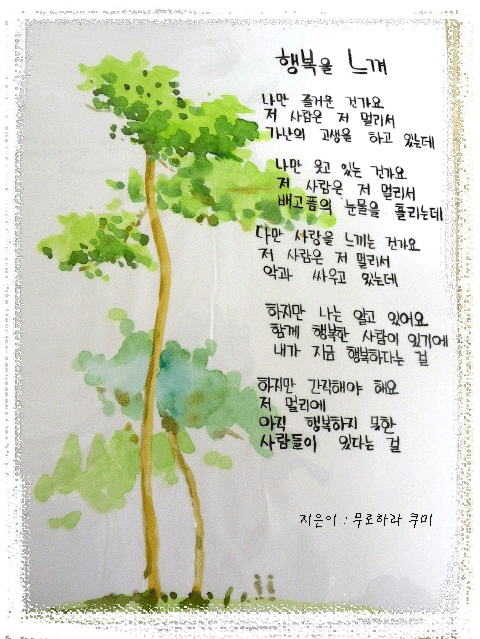 행복을 느껴
나만 즐거운 건가요
저 사람은 저 멀리서
가난의 고생을 하고 있는데
나만 웃고 있는 건가요
저 사람은 저 멀리서
배고픔의 눈물을 흘리는데
나만 사랑을 느끼는 건가요
저 사람은 저 멀리서
악과 싸우고 있는데
하지만 나는 알고 있어요
함께 행복한 사람이 있기에
내가 지금 행복하다는 걸
하지만 간직해야 해요
저 멀리에
아직 행복하지 못한
사람들이 있다는 걸
지은이 : 무로하라 쿠미